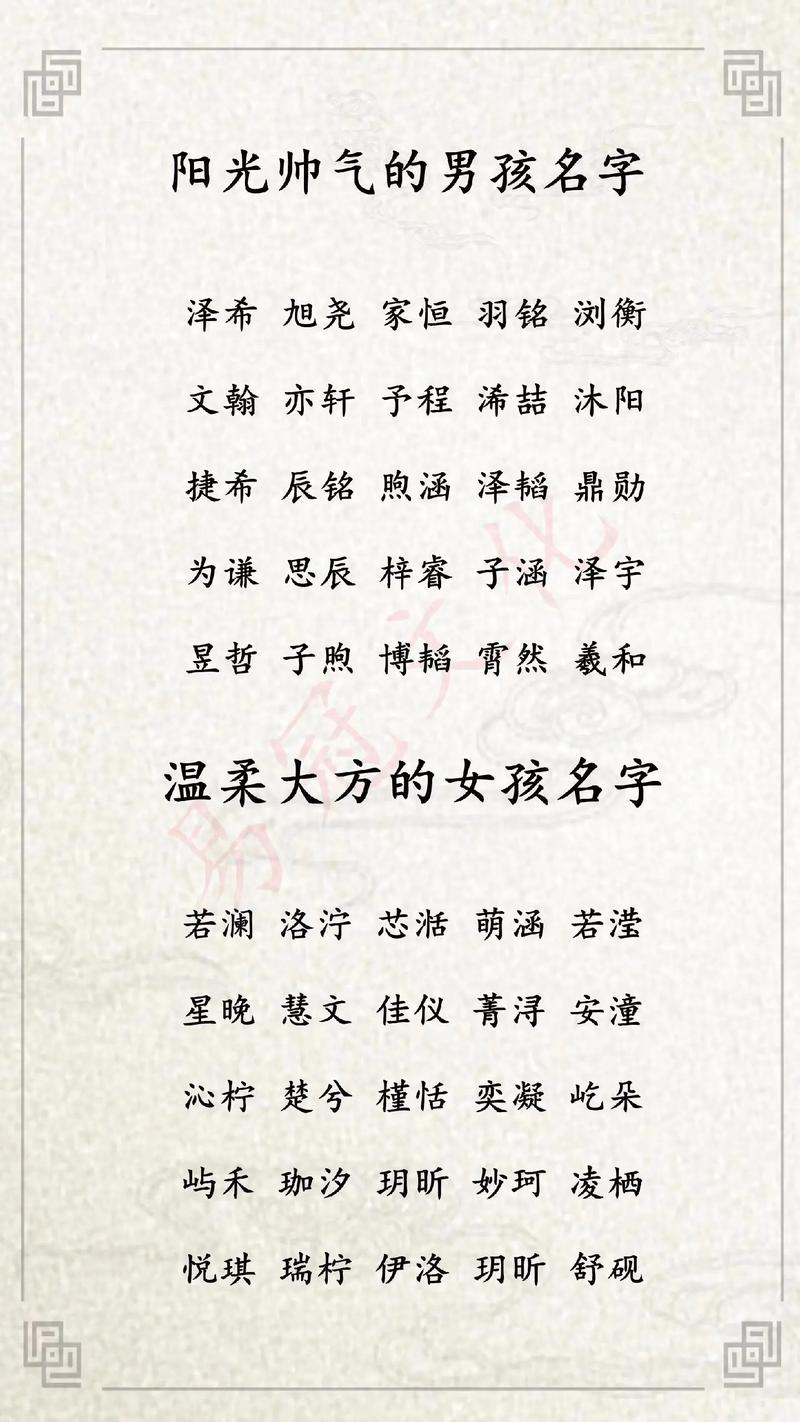 阳光帅气的男孩名字
泽希 旭尧 家恒 羽铭 浏衡
文翰 亦轩 予程 浠喆 沐阳
捷希 辰铭 煦涵 泽韬 鼎勋
为谦 思辰 梓睿 子涵 泽宇
昱哲 子煦 博韬 霄然 羲和
温柔大方的女孩名字
若澜 洛泞 芯湉 萌涵 若滢
星晚 慧文 佳仪 菁浔 安潼
沁柠 楚兮 槿恬 奕凝 屹朵
屿禾 珈汐 玥昕 妙珂 凌栖
悦琪 瑞柠 伊洛 玥昕 舒砚
易冠文化